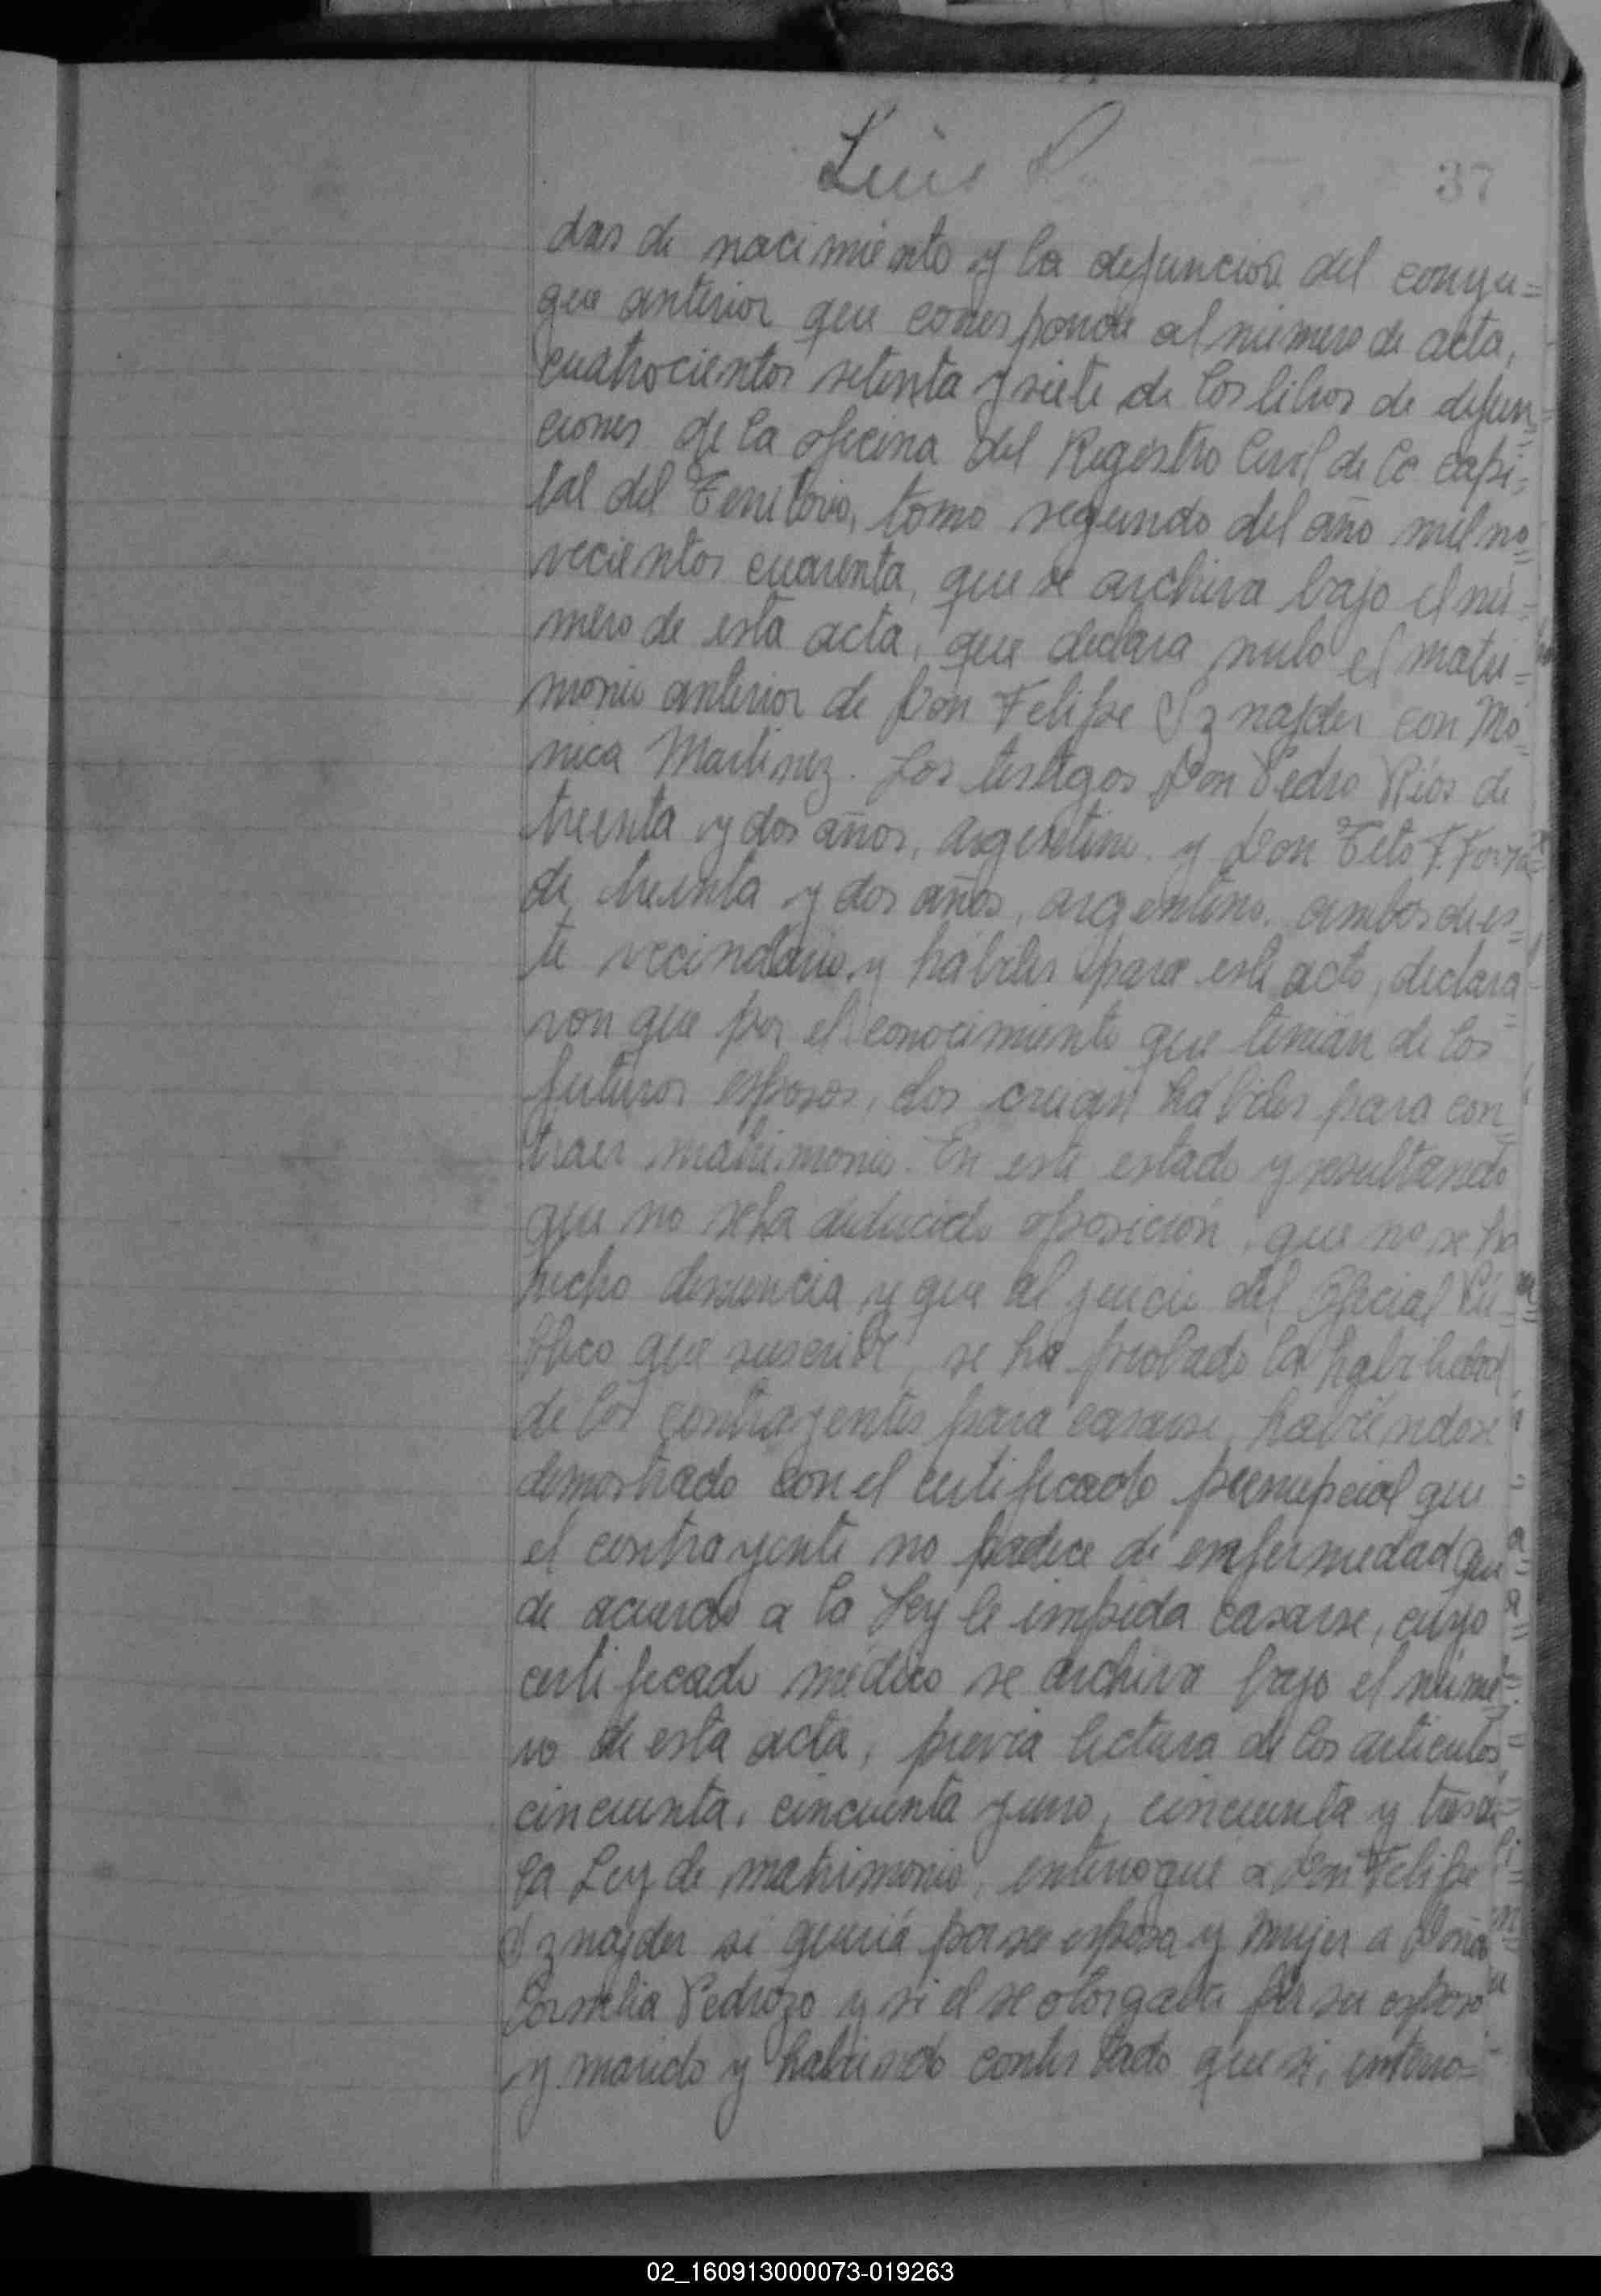 Luis P
37
das de nacimiento y la defunción del conyu=
gue anterior que corresponde al número de acta,
cuatrocientos setenta y siete de los libros de defun=
ciones de la oficina del Registro Civil de la capi=
tal del Territorio, tomo segundo del año mil no=
vecientos cuarenta, que se archiva bajo el nú=
mero de esta acta, que declara nulo el matri=
monio anterior de Don Felipe Sznajder con Mó=
nica Martinez. Los testigos Don Pedro Ríos de
treinta y dos años, argentino y Don Tito F.
de treinta y dos años, argentino, ambos de es=
te vecindario y hábiles para este acto, declara=
ron que por el conocimiento que tenián de los
futuros esposos, los creian hábiles para con=
traer matrimonio. En este estado y resultando
que no se ha deducido oposición, que no se ha
hecho denuncia y que al juicio del Oficial Pú=
blico que suscribe, se ha probado la habilidad
de los contrayentes para casarse, habiéndose
demostrado con el certificado prenupcial que
el contrayente no padece de enfermedad que
de acuerdo a la Ley le impida casarse, cuyo
certificado médico se archiva bajo el núme=
ro de esta acta, previa lectura de los articulos
cincuenta, cincuenta y uno, cincuenta y tres de
la Ley de matrimonio, interrogue a Don Felipe
Sznajder si queriá por su esposa y mujer a Doña
Cornelia Pedrozo y si el se otorgaba por su esposo
y marido y habiendo contestado que si, interro=
02_160913000073-019263